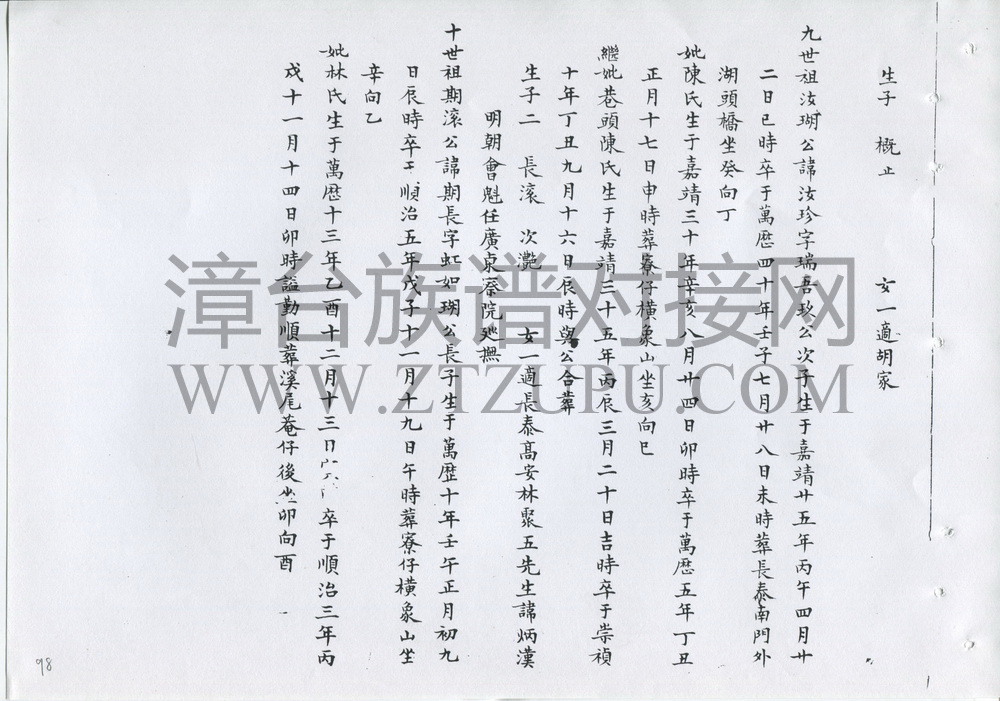 生子 概止 女一適胡家
九世祖汝瑚公諱汝珍字瑞吾玖公次子生于嘉靖廿五年丙午四月廿
二日巳時卒于萬歷四十年壬子七月廿八日未時葬長泰南門外
湖頭橋坐癸向丁
妣陳氏生于嘉靖三十年辛亥八月廿四日卯時卒于萬歷五年丁丑
正月十七日申時葬寮仔橫象山坐亥向巳
繼妣巷頭陳氏生于嘉靖三十五年丙辰三月二十日吉時卒于崇禎
十年丁丑九月十六日辰時與公合葬
生子二 長滾 次灧 女一適長泰高安林聚五先生諱炳漢
明朝會魁任廣東察院廵撫
十世祖期滾公諱期長字虹如瑚公長子生于萬歷十年壬午正月初九
日辰時卒于順治五年戊子十一月十九日午時葬寮仔橫象山坐
辛向乙
妣林氏生于萬歷十三年乙酉十二月十三日 卒于順治三年丙
戍十一月十四日卯時謚勤順葬溪尾菴仔後坐卯向酉
98
漳台族谱对接网
WWW.ZTZUPU.COM